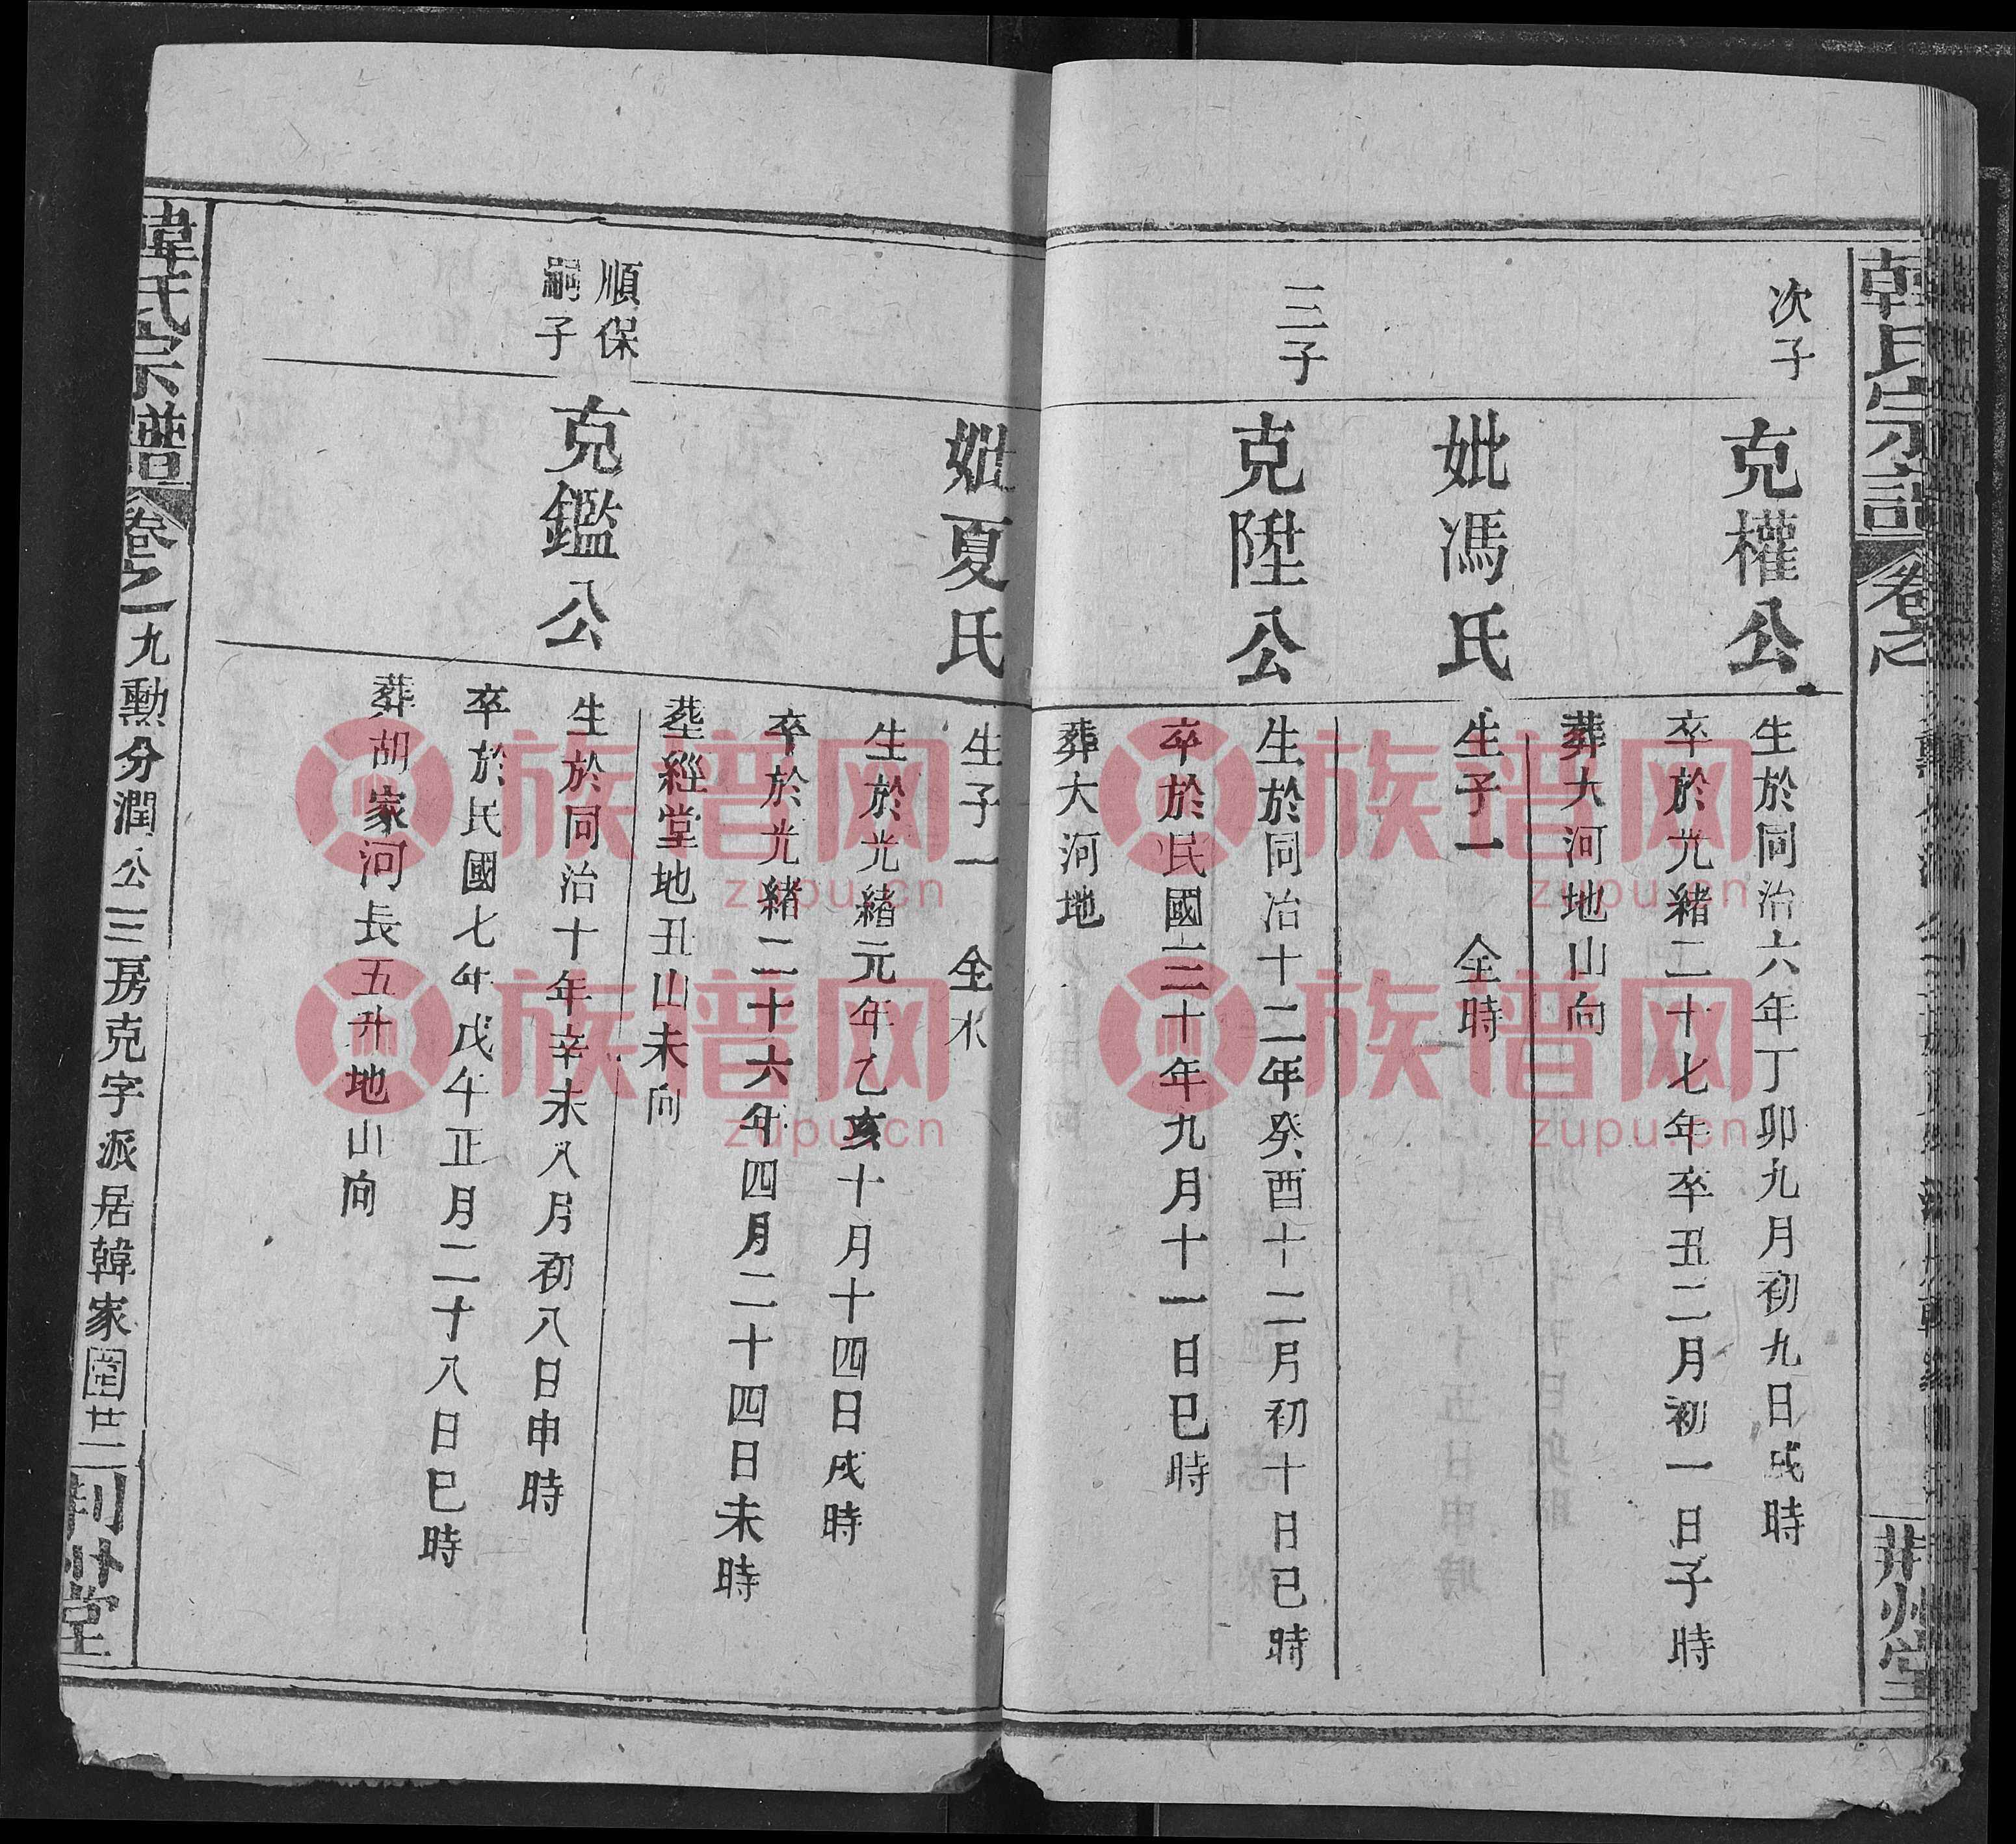 韓氏宗譜
荆州堂
次子
克權公
生於同治六年丁卯九月初九日戌時
卒於光緒二十七年卒丑二月初一日子時
葬大河地山向
妣馮氏
生子一 全時
三子
克陞公
生於同治十二年癸酉十二月初十日巳時
卒於民國三十年九月十一日巳時
葬大河地
妣夏氏
生子一 全水
生於光緒元年乙亥十月十四日戌時
卒於光緒二十六年四月二十四日未時
塟經堂地丑山未向
順保
嗣子
克鑑公
生於同治十年辛未八月初八日申時
卒於民國七年戊午正月二十八日巳時
葬胡家河長五升地山向
韓氏宗譜 卷之一 九勳分潤公三房克字派居韓家 廿二 荆州堂
族谱网
zupu.cn
族谱网
zupu.cn
族谱网
zupu.cn
族谱网
zupu.cn